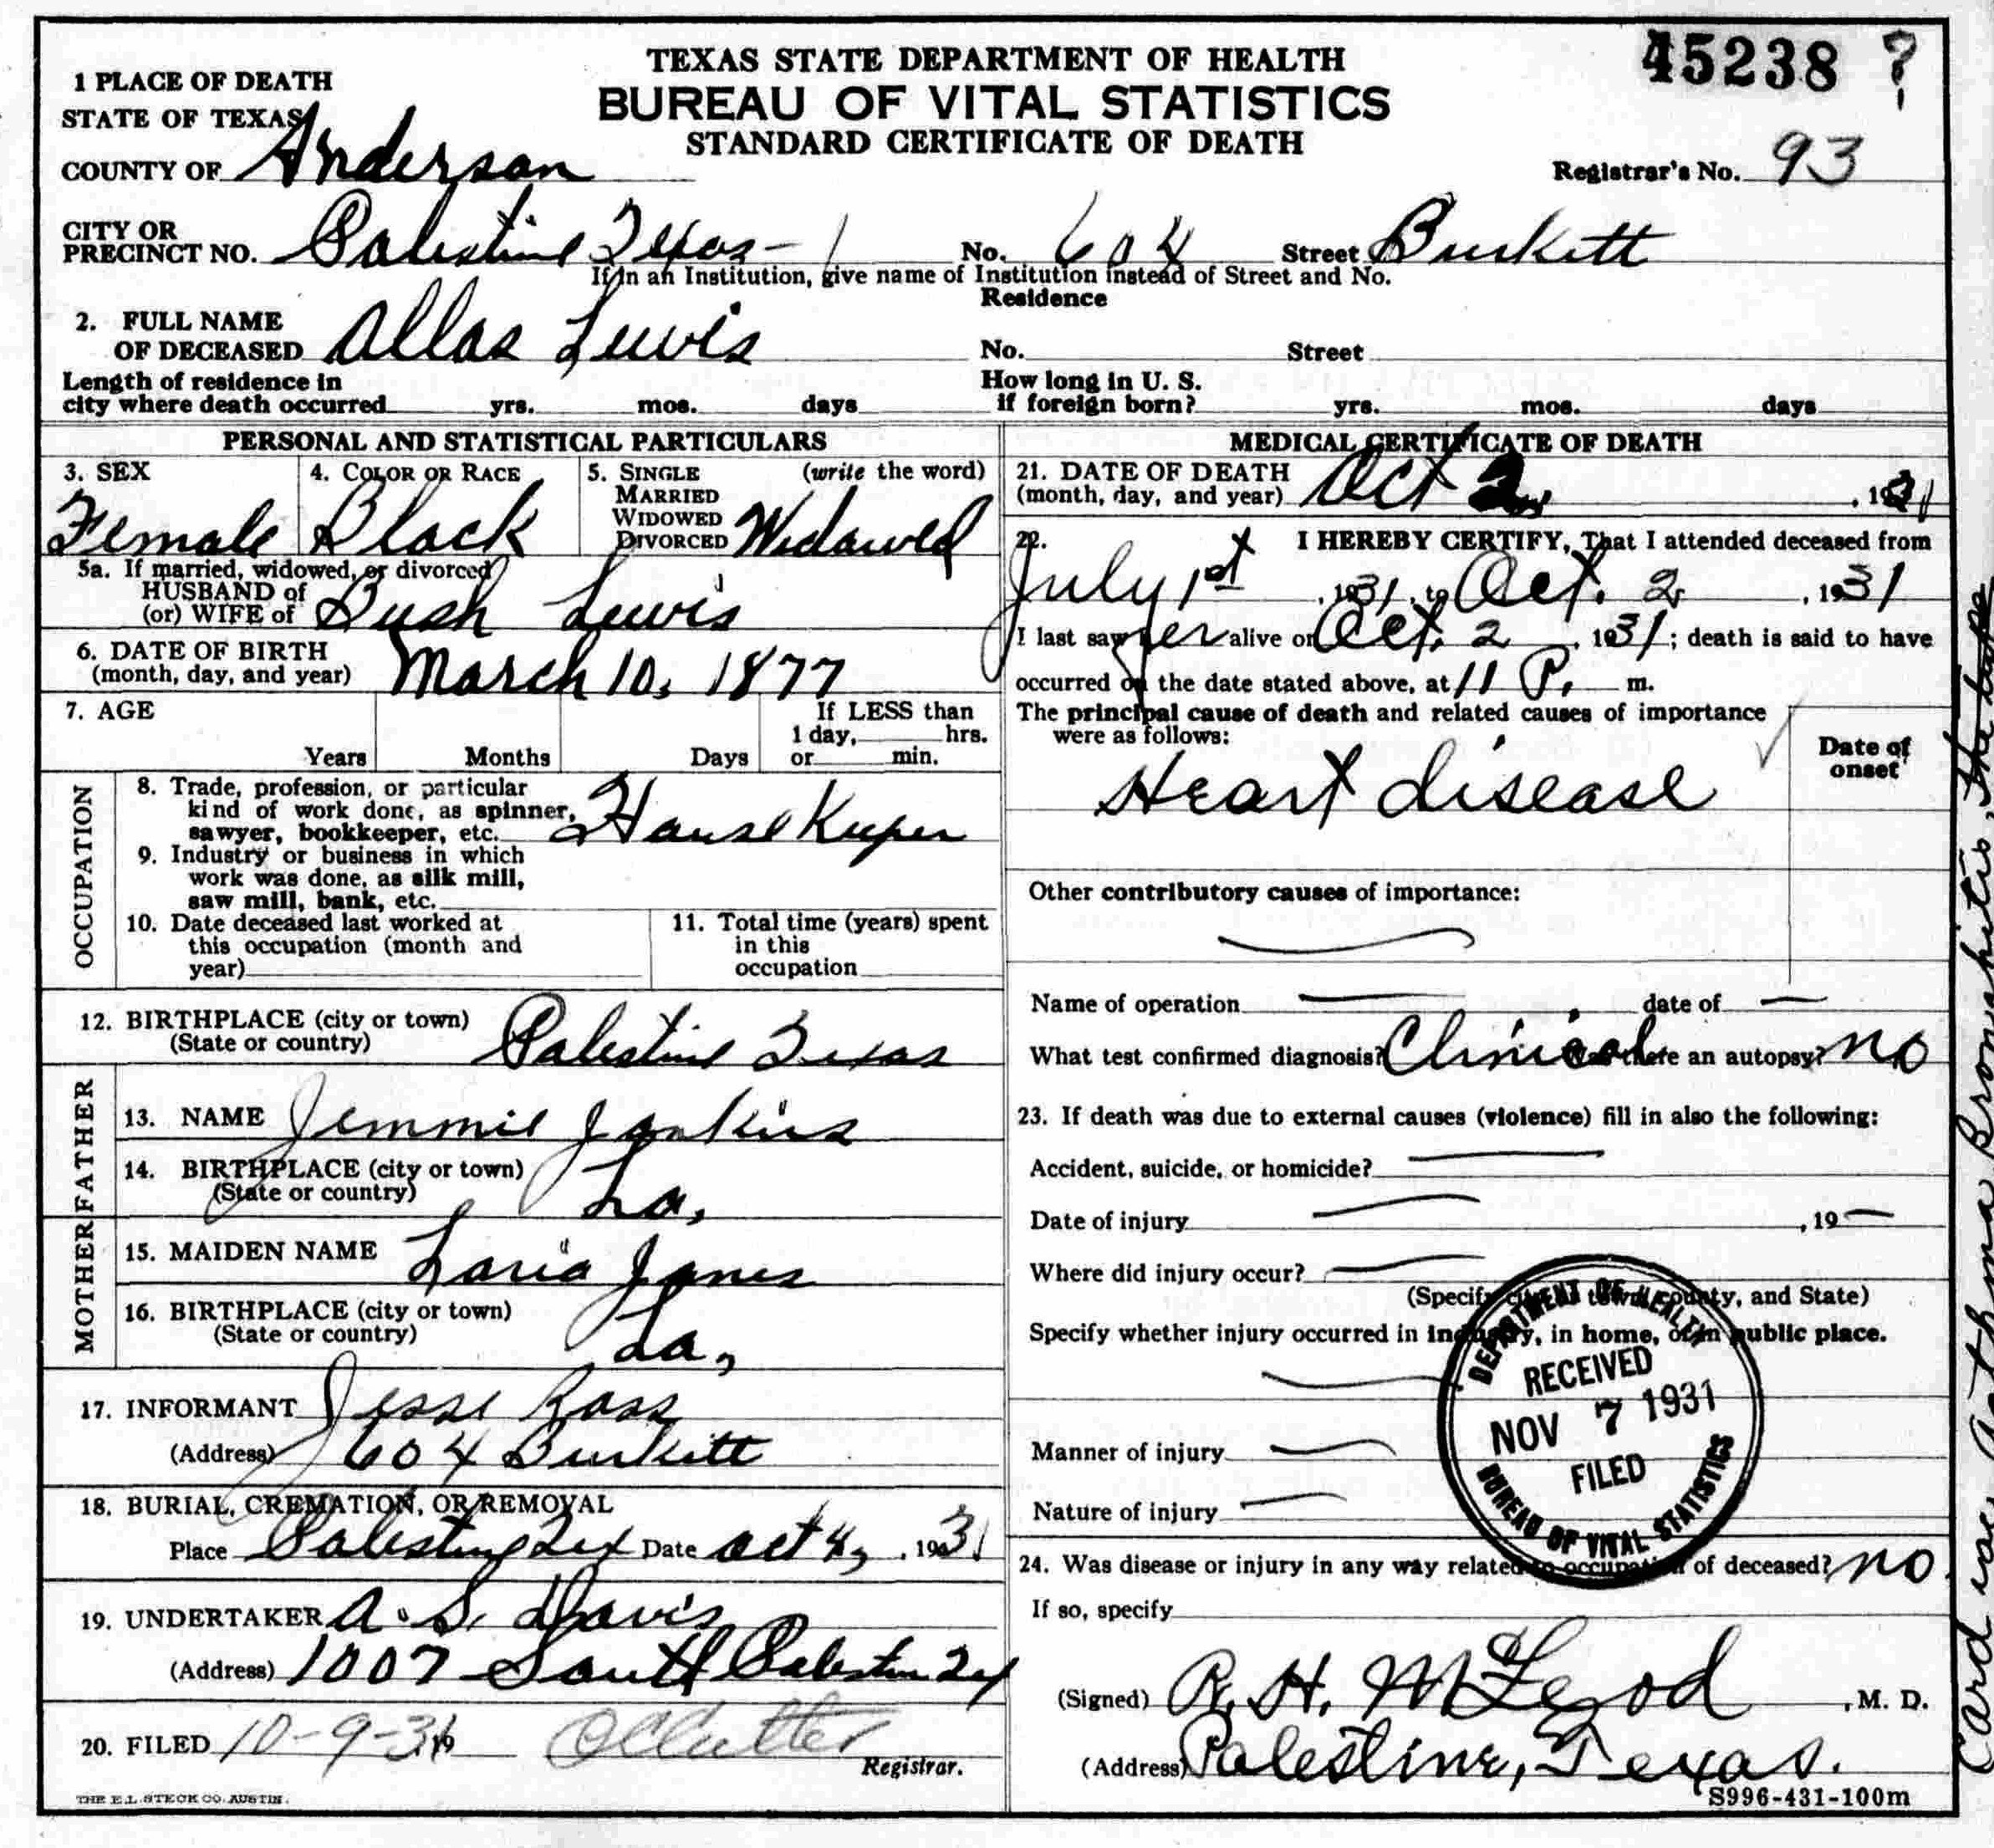 TEXAS STATE DEPARTMENT OF HEALTH
BUREAU OF VITAL STATISTICS
STANDARD CERTIFICATE OF DEATH
45238 ?
Registrar's No. 93
1 PLACE OF DEATH
STATE OF TEXAS
COUNTY OF Anderson
CITY OR
PRECINCT NO. Palestine Texas - 1 No. 604 Street Burkett
If in an Institution, give name of Institution instead of Street and No.
Residence
2. FULL NAME
OF DECEASED Allas Lewis No. Street
Length of residence in
city where death occurred yrs. mos. days
How long in U. S.
if foreign born? yrs. mos. days
PERSONAL AND STATISTICAL PARTICULARS
3. SEX Female
4. COLOR OR RACE Black
5. SINGLE (write the word)
MARRIED
WIDOWED
DIVORCED Widowed
5a. If married, widowed, or divorced
HUSBAND of
(or) WIFE of Bush Lewis
6. DATE OF BIRTH
(month, day, and year) March 10, 1877
7. AGE
Years Months Days
If LESS than
1 day, hrs.
or min.
OCCUPATION
8. Trade, profession, or particular
kind of work done, as spinner,
sawyer, bookkeeper, etc. House Keeper
9. Industry or business in which
work was done, as silk mill,
saw mill, bank, etc.
10. Date deceased last worked at
this occupation (month and
year)
11. Total time (years) spent
in this
occupation
12. BIRTHPLACE (city or town)
(State or country) Palestine Texas
FATHER
13. NAME Jemmie Jankins
14. BIRTHPLACE (city or town)
(State or country) La,
MOTHER
15. MAIDEN NAME Janes
16. BIRTHPLACE (city or town)
(State or country) La,
17. INFORMANT Jesse Ross
(Address) 604 Burkitt
18. BURIAL, CREMATION, OR REMOVAL
Place Palestine Tex Date Oct 4, 1931
19. UNDERTAKER A. S. Davis
(Address) 1007 South Palestine Tex
20. FILED 10-9-31 19
Registrar.
THE E.L. STECK CO. AUSTIN.
MEDICAL CERTIFICATE OF DEATH
21. DATE OF DEATH
(month, day, and year) Oct 2, 1931
22. I HEREBY CERTIFY, That I attended deceased from
July 1st, 1931, to Oct. 2, 1931
I last saw her alive on Oct. 2, 1931; death is said to have
occurred on the date stated above, at 11 P. m.
The principal cause of death and related causes of importance
were as follows:
Date of
onset
Heart disease
Other contributory causes of importance:
Name of operation date of
What test confirmed diagnosis? Clinical Was there an autopsy? no
23. If death was due to external causes (violence) fill in also the following:
Accident, suicide, or homicide?
Date of injury , 19
Where did injury occur?
(Specify city or town, county, and State)
Specify whether injury occurred in industry, in home, or in public place.
Manner of injury
Nature of injury
DEPARTMENT OF HEALTH
RECEIVED
NOV 7 1931
FILED
BUREAU OF VITAL STATISTICS
24. Was disease or injury in any way related to occupation of deceased? no
If so, specify
(Signed) R. H. McLeod, M. D.
(Address) Palestine, Texas.
S996-431-100m
Asthma Bronchitis, the